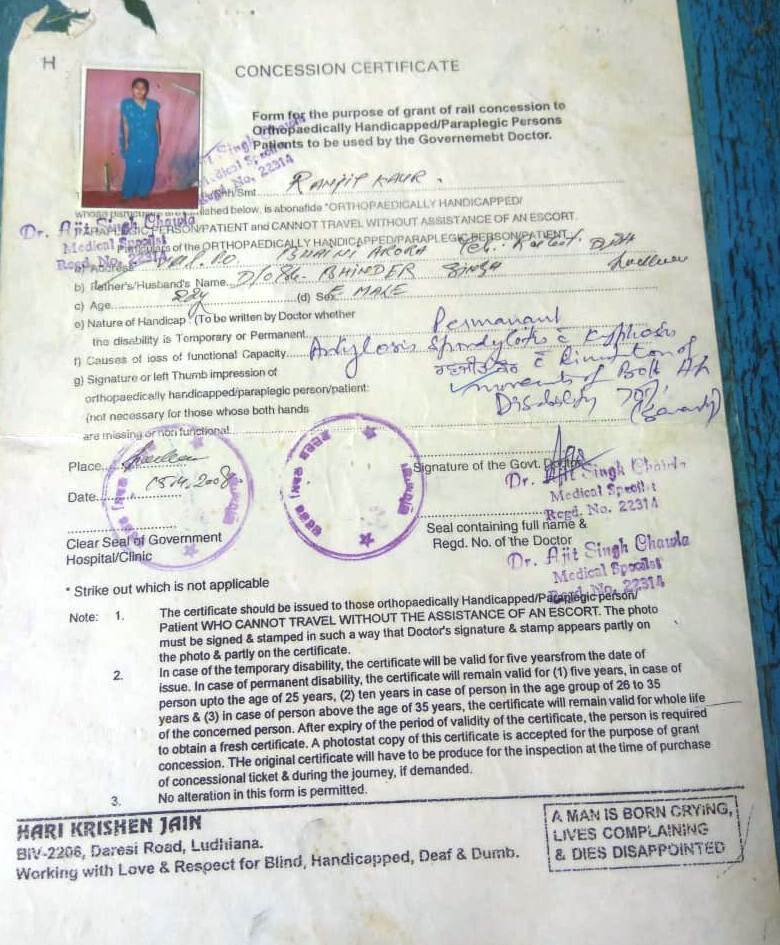 H
CONCESSION CERTIFICATE
Form for the purpose of grant of rail concession to
Orthopaedically Handicapped/Paraplegic Persons
Patients to be used by the Governemebt Doctor.
Dr. Ajit Singh Chawla
Medical Specilist
Regd. No. 22314
Shri/Smt RANJIT KAUR.
whose particulars are furnished below, is abonafide *ORTHOPAEDICALLY HANDICAPPED/
PARAPLEGIC PERSON/PATIENT and CANNOT TRAVEL WITHOUT ASSISTANCE OF AN ESCORT.
Particulars of the ORTHOPAEDICALLY HANDICAPPED/PARAPLEGIC PERSON/PATIENT
a) Address V.P.O. BHAINI ARORA
b) Father's/Husband's Name D/O Sh. BHINDER SINGH
c) Age 22y (d) Sex FEMALE
e) Nature of Handicap : (To be written by Doctor whether
the disability is Temporary or Permanent. Permanant
f) Causes of loss of functional Capacity Spondylitis c Kyphosis
g) Signature or left Thumb impression of
orthopaedically handicapped/paraplegic person/patient:
movements of Both
(not necessary for those whose both hands
Disability 70%
are missing or non functional
Place
Date 2008
Signature of the Govt. Doctor
Dr. Ajit Singh Chawla
Medical Specilist
Regd. No. 22314
Clear Seal of Government
Hospital/Clinic
Seal containing full name &
Regd. No. of the Doctor
Dr. Ajit Singh Chawla
Medical Specilist
Regd. No. 22314
* Strike out which is not applicable
Note: 1. The certificate should be issued to those orthopaedically Handicapped/Paraplegic person/
Patient WHO CANNOT TRAVEL WITHOUT THE ASSISTANCE OF AN ESCORT. The photo
must be signed & stamped in such a way that Doctor's signature & stamp appears partly on
the photo & partly on the certificate.
2. In case of the temporary disability, the certificate will be valid for five yearsfrom the date of
issue. In case of permanent disability, the certificate will remain valid for (1) five years, in case of
person upto the age of 25 years, (2) ten years in case of person in the age group of 26 to 35
years & (3) in case of person above the age of 35 years, the certificate will remain valid for whole life
of the concerned person. After expiry of the period of validity of the certificate, the person is required
to obtain a fresh certificate. A photostat copy of this certificate is accepted for the purpose of grant
concession. THe original certificate will have to be produce for the inspection at the time of purchase
of concessional ticket & during the journey, if demanded.
3. No alteration in this form is permitted.
HARI KRISHEN JAIN
BIV-2206, Daresi Road, Ludhiana.
Working with Love & Respect for Blind, Handicapped, Deaf & Dumb.
A MAN IS BORN CRYING,
LIVES COMPLAINING
& DIES DISAPPOINTED